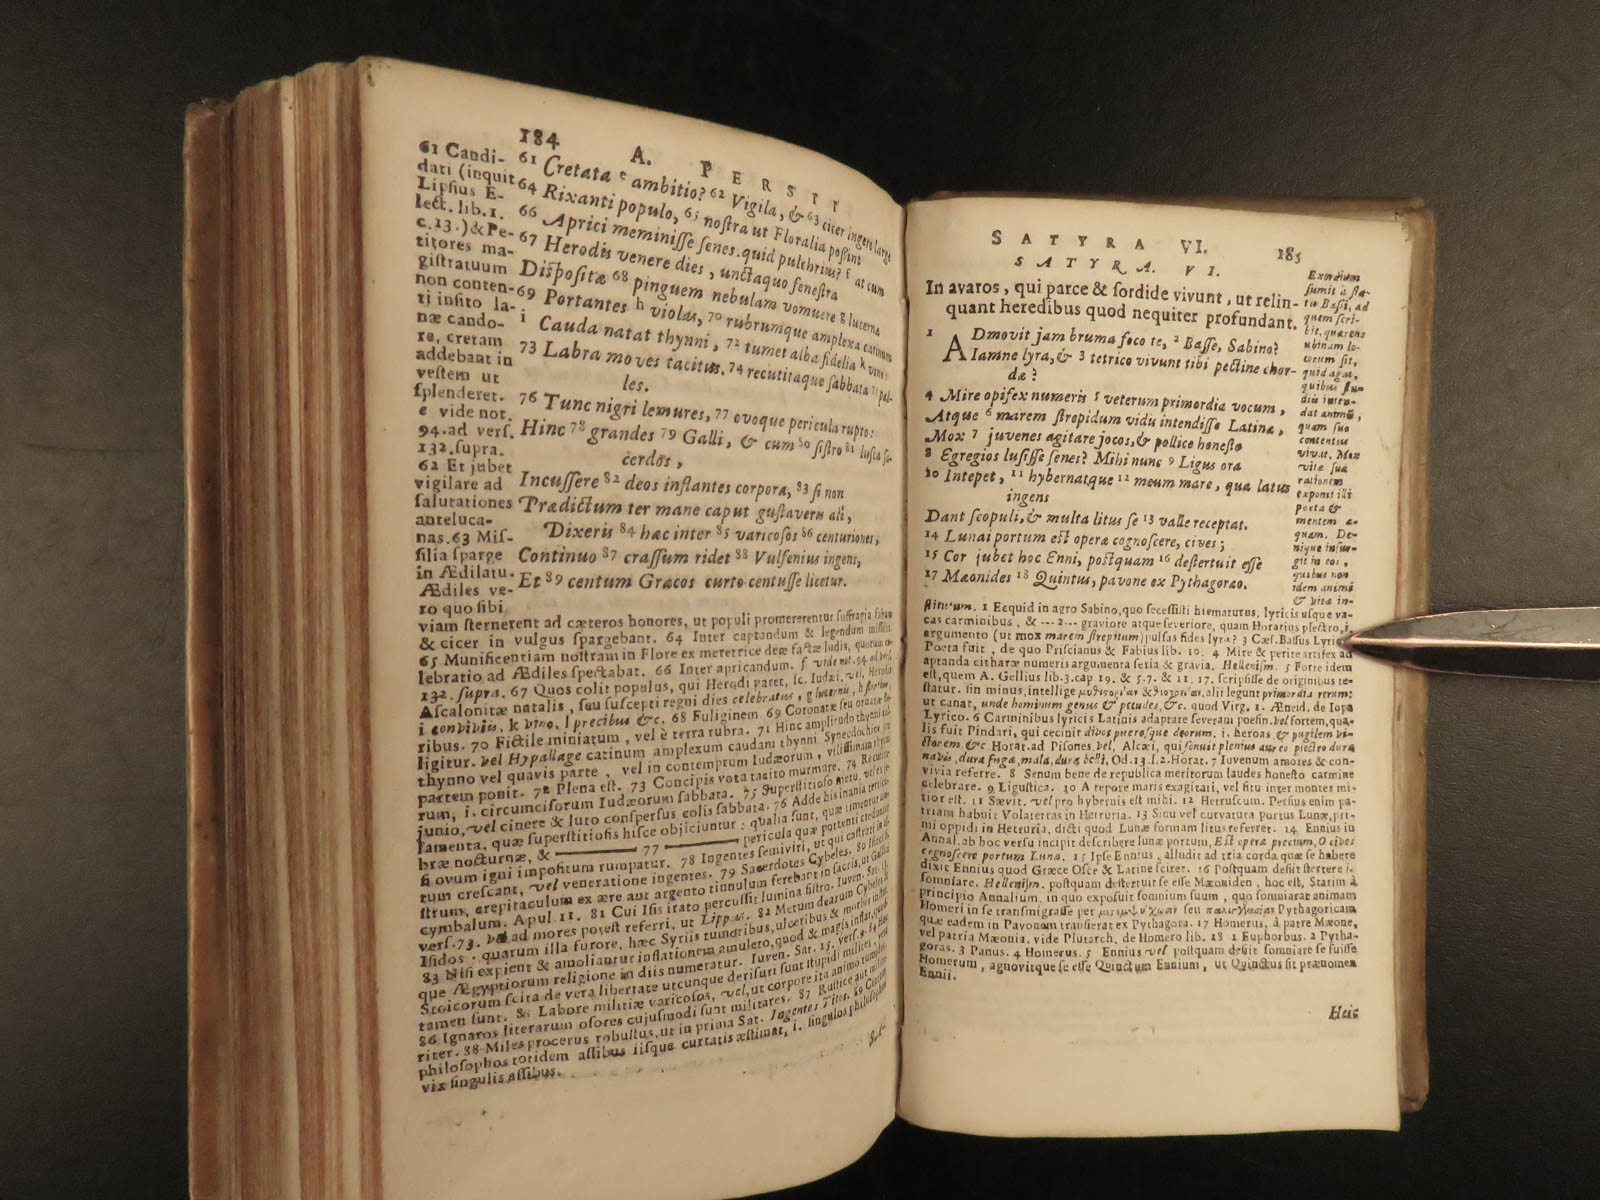 184 A. PERSII
61 Candi-
dati (inquit
Lipsius E-
lect. lib.1.
c.13.) & Pe-
titores ma-
gistratuum
non conten-
ti insito la-
næ cando-
re, cretam
addebant in
vestem ut
splenderet.
e vide not.
94. ad vers.
132. supra.
62 Et jubet
vigilare ad
salutationes
anteluca-
nas. 63 Mis-
silia sparge
in Ædilatu.
Ædiles ve-
ro quo sibi
61 Cretata e ambitio? 62 Vigila, & 63 cicer ingere large
64 Rixanti populo, 65 nostra ut Floralia possint
66 Aprici meminisse senes. quid pulchrius? f at cum
67 Herodis venere dies, unctaque fenestra
Dispositæ 68 pinguem nebulam vomuere g lucernæ
69 Portantes h violas, 70 rubrumque amplexa catinum
i Cauda natat thynni, 72 tumet alba fidelia k vino;
73 Labra moves tacitus. 74 recutitaque sabbata 75 pal-
les.
76 Tunc nigri lemures, 77 ovoque pericula rupto:
Hinc 78 grandes 79 Galli, & cum 80 sistro 81 lusca sa-
cerdos,
Incussere 82 deos inflantes corpora, 83 si non
Prædictum ter mane caput gustaveris alî,
Dixeris 84 hæc inter 85 varicosos 86 centuriones,
Continuo 87 crassum ridet 88 Vulfenius ingens,
Et 89 centum Græcos curto centusse licetur.
viam sternerent ad cæteros honores, ut populi promererentur suffragia
& cicer in vulgus spargebant. 64 Inter captandum & legendum missilia
65 Munificentiam nostram in Flore ex meretrice deæ factæ ludis, quorum
lebratio ad Ædiles spectabat. 66 Inter apricandum. f vide not. 94. ad vers.
132. supra. 67 Quos colit populus, qui Herodi paret, sc. Iudæi, vel, Herodis
Ascalonitæ natalis, seu suscepti regni dies celebratus,
i conviviis, k vino, l precibus &c. 68 Fuliginem 69 Coronatæ seu ornatæ
ribus. 70 Fictile miniatum, vel è terra rubra. 71 Hinc amplitudo thynni
ligitur. vel Hypallage catinum amplexum caudam thynni Synecdochice
thynno vel quavis parte, vel in contemptum Iudæorum, vilissimam thynni
partem ponit. 72 Plena est. 73 Concipis vota tacito murmure. 74
rum, i. circumcisorum Iudæorum sabbata. 75 Superstitioso metu,
junio, vel cinere & luto conspersus colis sabbata. 76 Adde his inania
lamenta, quæ superstitiosis hisce objiciuntur: qualia sunt, quæ timentur
bræ nocturnæ, & —— 77 —— pericula quæ portenti creduntur
si ovum igni impositum rumpatur. 78 Ingentes semiviri, ut qui castrati
tum crescant, vel veneratione ingentes. 79 Sacerdotes Cybeles. 80
strum, crepitaculum ex ære aut argento tinnulum ferebant in sacris, ut
cymbalum. Apul 11. 81 Cui Isis irato percussit lumina sistro. Iuven. Sat.
vers. 73. vel ad mores potest referri, ut Lippus. 82 Metum dearum Cybeles &
Isidos: quarum illa furore, hæc Syriis tumoribus, ulceribus & morbis
83 Nisi expient & amoliantur inflationem amuleto, quod & magis
que Ægyptiorum religione in diis numeratur. Iuven. Sat. 15. vers. 9.
Stoicorum scita de vera libertate utcunque derisuri sunt stupidi milites,
tamen sunt. 85 Labore militiæ varicosos, vel, ut corpore ita animo
86 Ignaros literarum osores cujusmodi sunt militares. 87 Rustice
riter. 88 Miles procerus robustus, ut in prima Sat. Ingentes Titos. 89
philosophos totidem assibus iisque curtatis æstimat, i. singulos philosophos
vix singulis assibus.
SA-
SATYRA VI. 185
SATYRA. VI.
In avaros, qui parce & sordide vivunt, ut relin-
quant heredibus quod nequiter profundant.
1 ADmovit jam bruma foco te, 2 Basse, Sabino?
Iamne lyra, & 3 tetrico vivunt tibi pectine chor-
dæ?
4 Mire opifex numeris 5 veterum primordia vocum,
Atque 6 marem strepidum vidu intendisse Latinæ,
Mox 7 juvenes agitare jocos, & pollice honesto
8 Egregios lusisse senes? Mihi nunc 9 Ligus ora
10 Intepet, 11 hybernatque 12 meum mare, qua latus
ingens
Dant scopuli, & multa litus se 13 valle receptat.
14 Lunai portum est operæ cognoscere, cives;
15 Cor jubet hoc Enni, postquam 16 destertuit esse
17 Mæonides 18 Quintus, pavone ex Pythagoræo.
Exordium
sumit à sta-
tu Bassi, ad
quem scri-
bit, quærens
ubinam lo-
corum sit,
quid agat,
quibus stu-
diis inten-
dat animū,
quam suo
contentus
vivat. Mox
vitæ suæ
rationem
exponit illi
poeta &
mentem æ-
quam. De-
nique insur-
git in eos,
quibus non
idem animi
& vitæ in-
stitutum. 1 Ecquid in agro Sabino, quo secessisti hiematurus, lyricis usque va-
cas carminibus, & --- 2 --- graviore atque severiore, quam Horatius plectro, i.
argumento (ut mox marem strepitum) pulsas fides lyræ? 3 Cæs. Bassus Lyric
Poeta fuit, de quo Priscianus & Fabius lib. 10. 4 Mire & perite artifex ad
aptanda citharæ numeris argumenta seria & gravia. Hellenism. 5 Forte idem
est, quem A. Gellius lib. 3. cap. 19. & 5.7. & 11. 17. scripsisse de originibus te-
statur. sin minus, intellige μυθολογίας & θεογονίας, alii legunt primordia rerum:
ut canat, unde hominum genus & pecudes, &c. quod Virg. 1. Æneid. de Iopa
Lyrico. 6 Carminibus lyricis Latinis adaptare severam poesin. vel fortem, qua-
lis fuit Pindari, qui cecinit divos puerosque deorum. i. heroas & pugilem vi-
ctorem. &c Horat. ad Pisones. vel, Alcæi, qui sonuit plenius aureo plectro dura
navis, dura fugæ, mala, dura belli, Od. 13. l. 2. Horat. 7 Iuvenum amores & con-
vivia referre. 8 Senum bene de republica meritorum laudes honesto carmine
celebrare. 9 Ligustica. 10 A tepore maris exagitati, vel situ inter montes mi-
tior est. 11 Sævit. vel pro hybernis est mihi. 12 Hetruscum. Persius enim pa-
triam habuit Volaterras in Hetruria. 13 Sinu vel curvatura portus Lunæ, pri-
mi oppidi in Hetruria, dicti quod Lunæ formam litus referret. 14 Ennius in
Annal. ab hoc versu incipit describere lunæ portum, Est operæ precium, O cives
cognoscere portum Lunæ. 15 Ipse Ennius, alludit ad tria corda quæ se habere
dixit Ennius quod Græce Osce & Latine sciret. 16 Postquam desiit stertere i.
somniare. Hellenism. postquam destertuit se esse Mæoniden, hoc est, Statim à
principio Annalium, in quo exposuit somnium suum, quo somniarat animam
Homeri in se transmigrasse per μετεμψύχωσιν seu παλιγγενεσίαν Pythagoricam
quæ eadem in Pavonem transierat ex Pythagora. 17 Homerus, à patre Mæone,
vel patria Mæonia. vide Plutarch. de Homero lib. 18 1 Euphorbus. 2 Pytha-
goras. 3 Pavus. 4 Homerus. 5 Ennius vel postquam desiit somniare se fuisse
Homerum, agnovitque se esse Quinctum Ennium, ut Quinctus sit prænomen
Ennii.
Heic